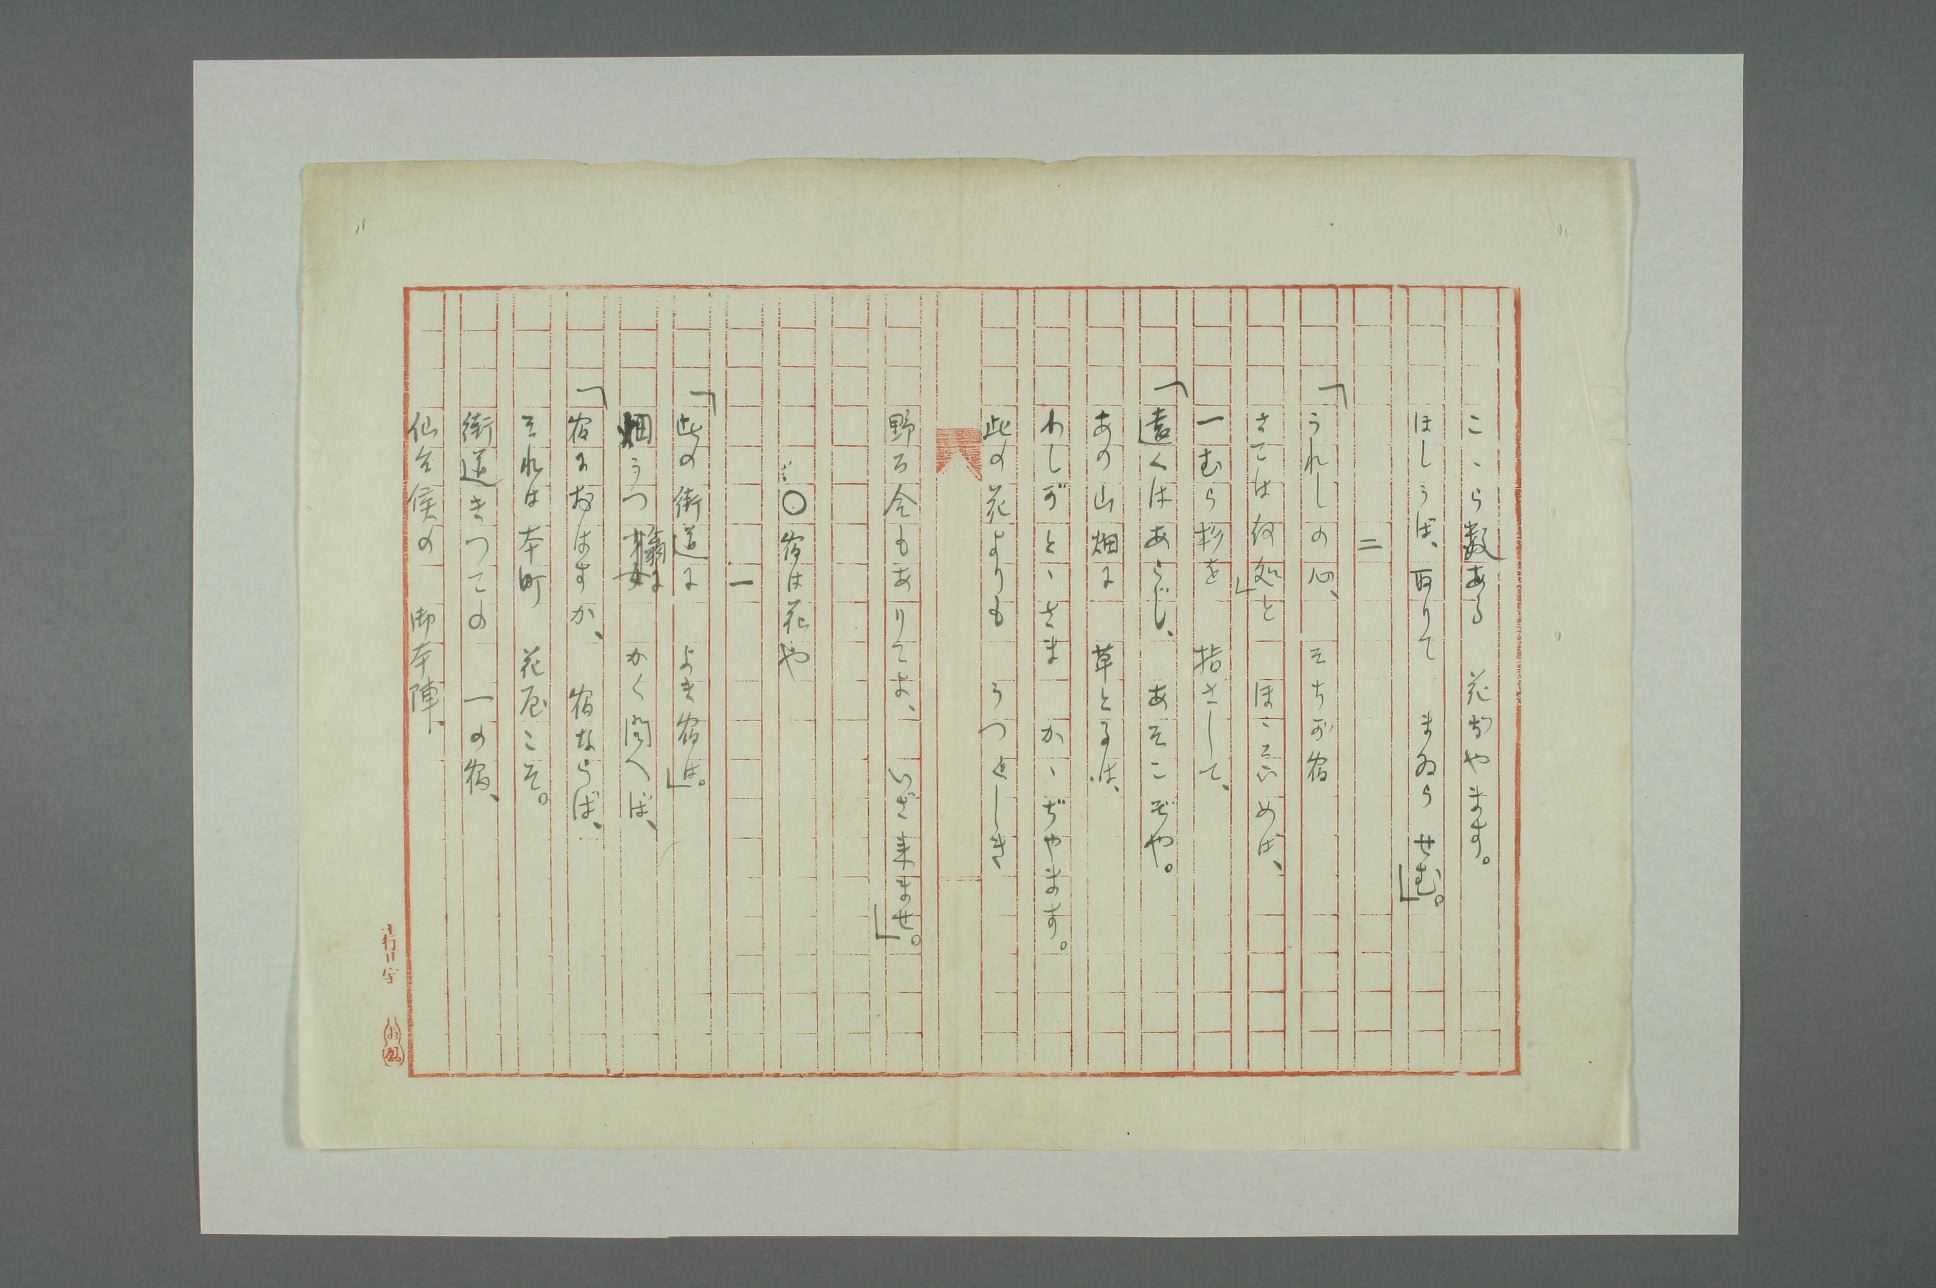 こゝら数ある　花ぢやます。
ほしうば、取りて　まゐらせむ。」
二
「うれしの心、　そちが宿
さては何処」と　ほゝゑめば、
一むら杉を　指さして、
「遠くはあらじ、　あそこぞや。
あの山畑に　草とるは、
わしがとゝさま　かゝぢやます。
此の花よりも　うつくしき
野ろ合もありてよ、　いざ来ませ。」
○宿は花や
一
「此の街道に　よき宿は。」
畑うつ翁に　かく問へば、
「宿におはすか、　宿ならば、
それは本町　花屋こそ。
街道きつての　一の宿、
仙台侯の　御本陣、